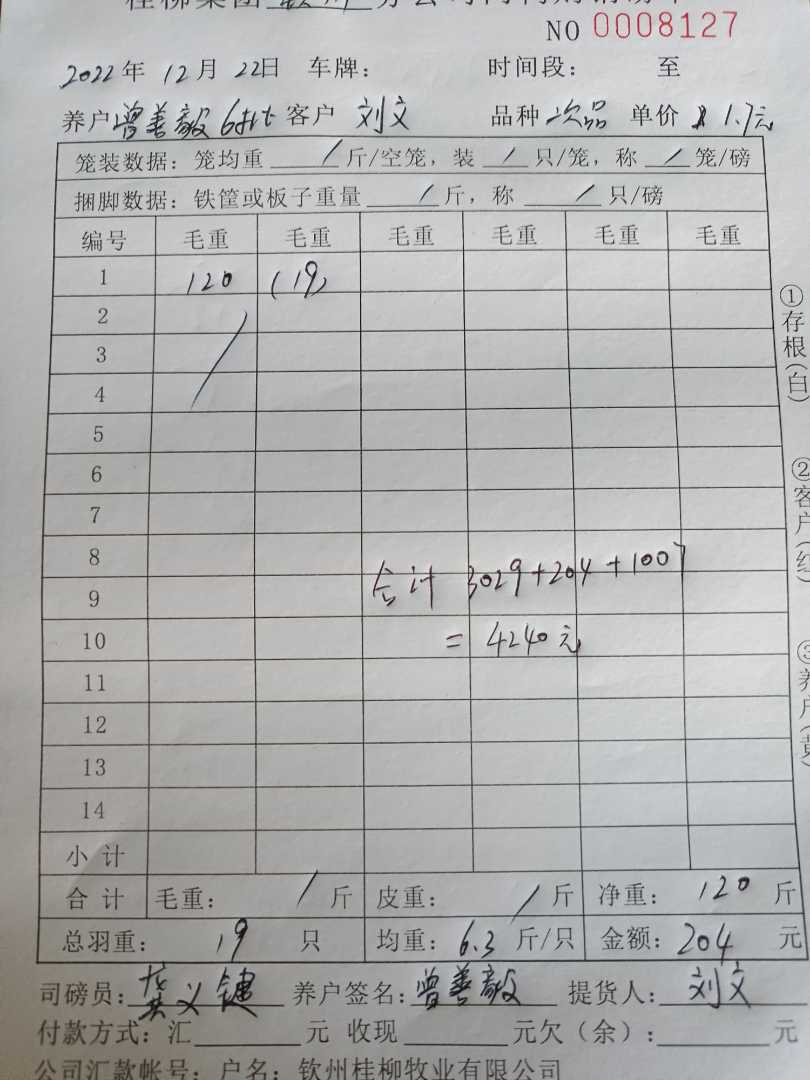 桂柳集团 钦州 分公司
NO 0008127
2022年 12月 22日 车牌： 时间段： 至
养户 曾善毅 6批 客户 刘文 品种 次品 单价 1.7元
笼装数据：笼均重 / 斤/空笼，装 / 只/笼，称 / 笼/磅
捆脚数据：铁筐或板子重量 / 斤，称 / 只/磅
编号 毛重 毛重 毛重 毛重 毛重 毛重
1 120 (19)
2
3
4
5
6
7
8
合计 3029+204+1007
9
10 = 4240元
11
12
13
14
小计
合计 毛重： / 斤 皮重： / 斤 净重： 120 斤
总羽重： 19 只 均重： 6.3 斤/只 金额： 204 元
司磅员： 龚义键 养户签名： 曾善毅 提货人： 刘文
付款方式：汇 元 收现 元欠（余）： 元
公司汇款帐号：户名：钦州桂柳牧业有限公司
①存根(白)
②客户(红)
③养户(黄)